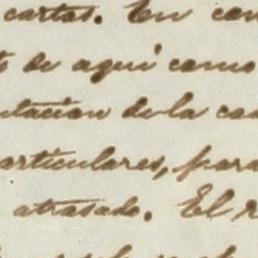 cartas. En con
de aquí como
utacion de la ca
articulares, para
atrasado. El r